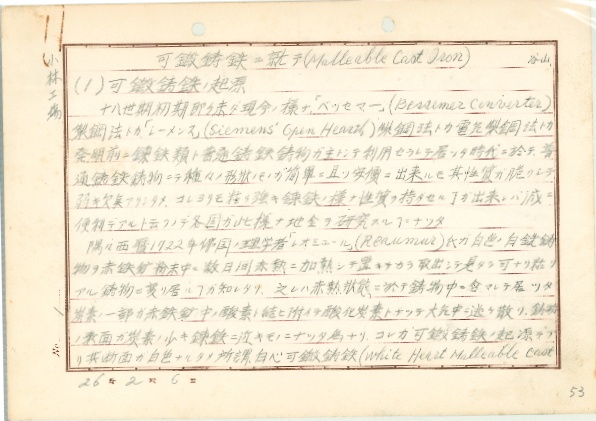 小林工場
可鍛鋳鉄ニ就テ(Malleable Cast Iron)
谷山
(1)可鍛鋳鉄ノ起源
十八世期初期即チ未ダ現今ノ様ナ「ベッセマー」(Bessemer Converter)
製鋼法トカ「シーメンス」(Siemens' Open Hearth)製鋼法トカ電気製鋼法トカ
発明前ニ錬鉄類ト普通鋳鉄鋳物ガ主トシテ利用セラレテ居ッタ時代ニ於テ、普
通鋳鉄鋳物ニテ種々ノ形状ノモノガ簡単ニ且ツ安価ニ出来ルモ其性質ガ脆ク
弱イ欠点アリシタメ、コレヨリモ粘リ強キ錬鉄ノ様ナ性質ヲ持タセル事ガ出来レバ誠ニ
便利デアルト云フノデ各国ガ此様ナ地金ヲ研究スル
隅々西暦1722年佛国ノ理学者「レオミュール」(Reaumur)氏ガ白色ノ白銑鋳
物ヲ赤鉄鉱粉末中ニ数日间赤熱ニ加熱シテ置キテカラ取出シテ見タラ可ナリ粘リ
アル鋳物ニ変リ居ル事ガ知レタリ、之レハ赤熱状態ニ於テ鋳物中ニ含マレテ居ッタ
炭素ノ一部ガ赤鉄鉱中ノ酸素ト結ビ附イテ酸化炭素トナッテ大気中ニ逃ゲ散リ、鋳物
ノ表面ガ炭素ノ少キ錬鉄ニ近キモノニナッタ為ナリ、コレガ可鍛鋳鉄ノ起源デア
リ其断面ガ白色ナルタメ所謂白心可鍛鋳鉄(White Heart Malleable Cast
No.
26年 2月 6日
53